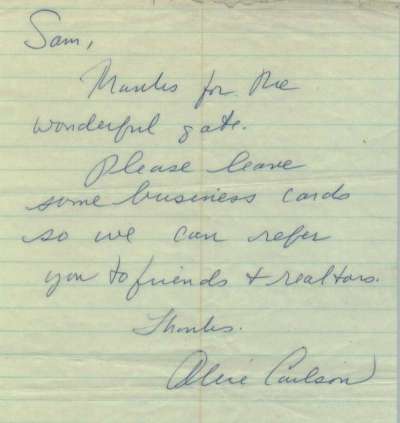 Sam,
Thanks for the
wonderful gate.
Please leave
some business cards
so we can refer
you to friends + realtors.
Thanks.
Carlson